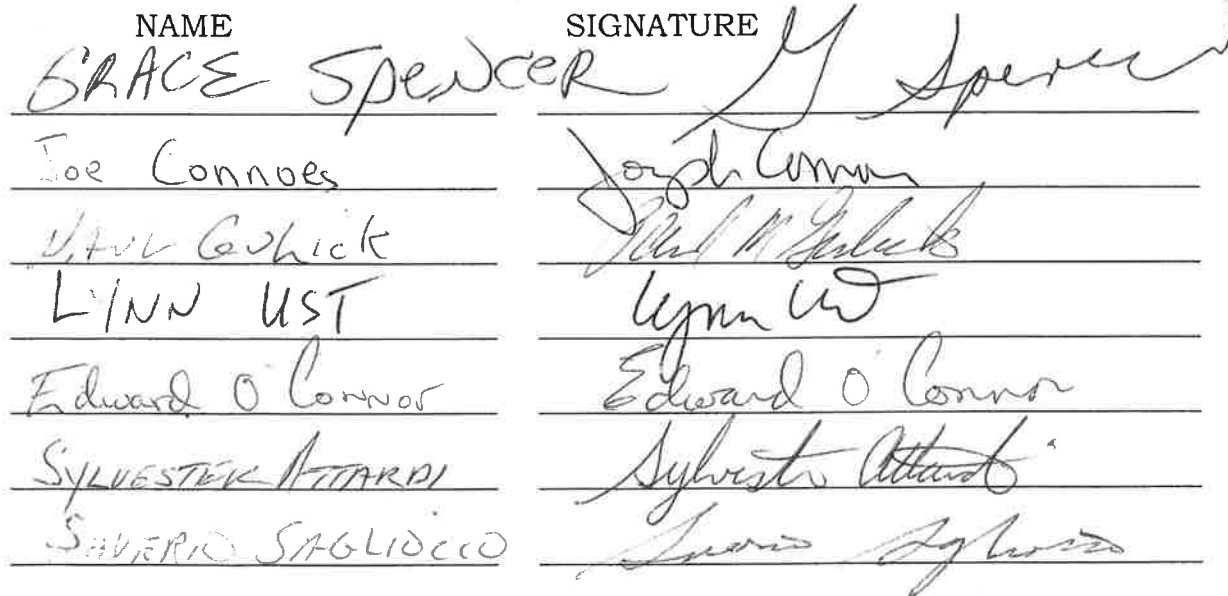 NAME SIGNATURE
GRACE SPENCER G Spencer
Joe Connors Joseph Connor
Paul Gulick Paul M Gulick
LYNN UST Lynn Ust
Edward O'Connor Edward O'Connor
SYLVESTER ATTARDI Sylvester Attardi
SAVERIO SAGLIOCCO Saverio Sagliocco